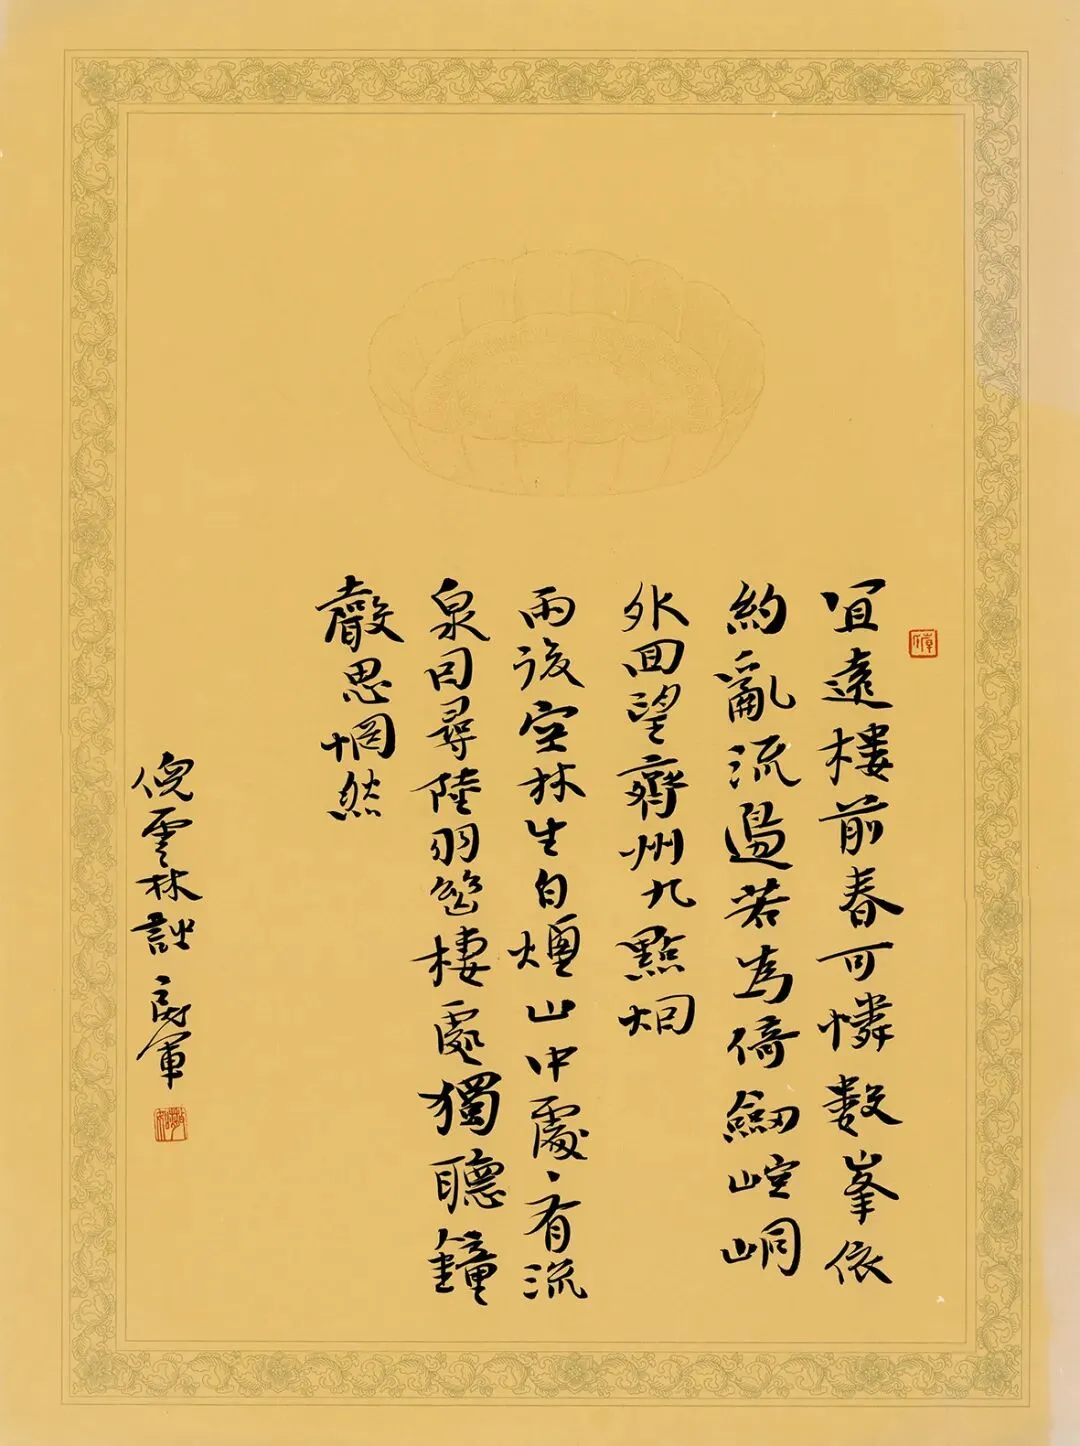 宜遠樓前春可憐數峯依
約亂流邊若為倚劒崆峒
外回望齊州九點烟
雨後空林生白煙山中處〻有流
泉因尋陸羽幽棲處獨聽鐘
聲思惘然
倪雲林詩